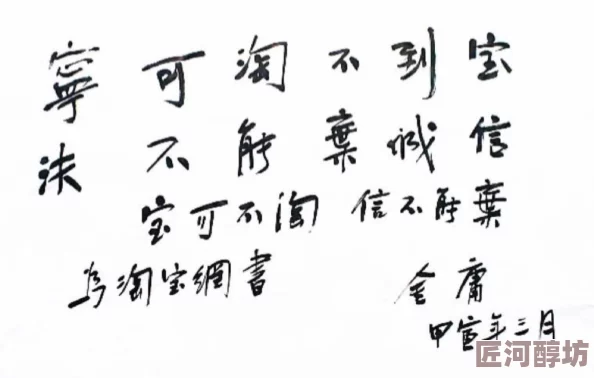 寧可淘不到宝
决不能棄诚信
宝可不淘 信不能棄
为淘宝網書 金庸
甲宣年三月
匠河醇坊